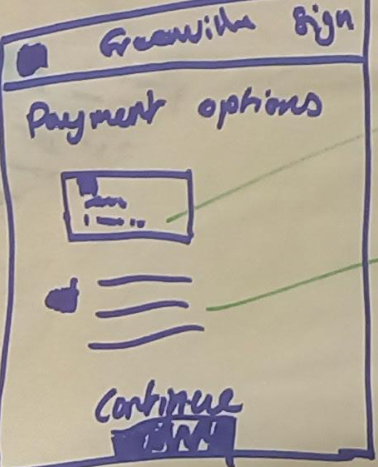 Greenville Sign
Payment options
Continue